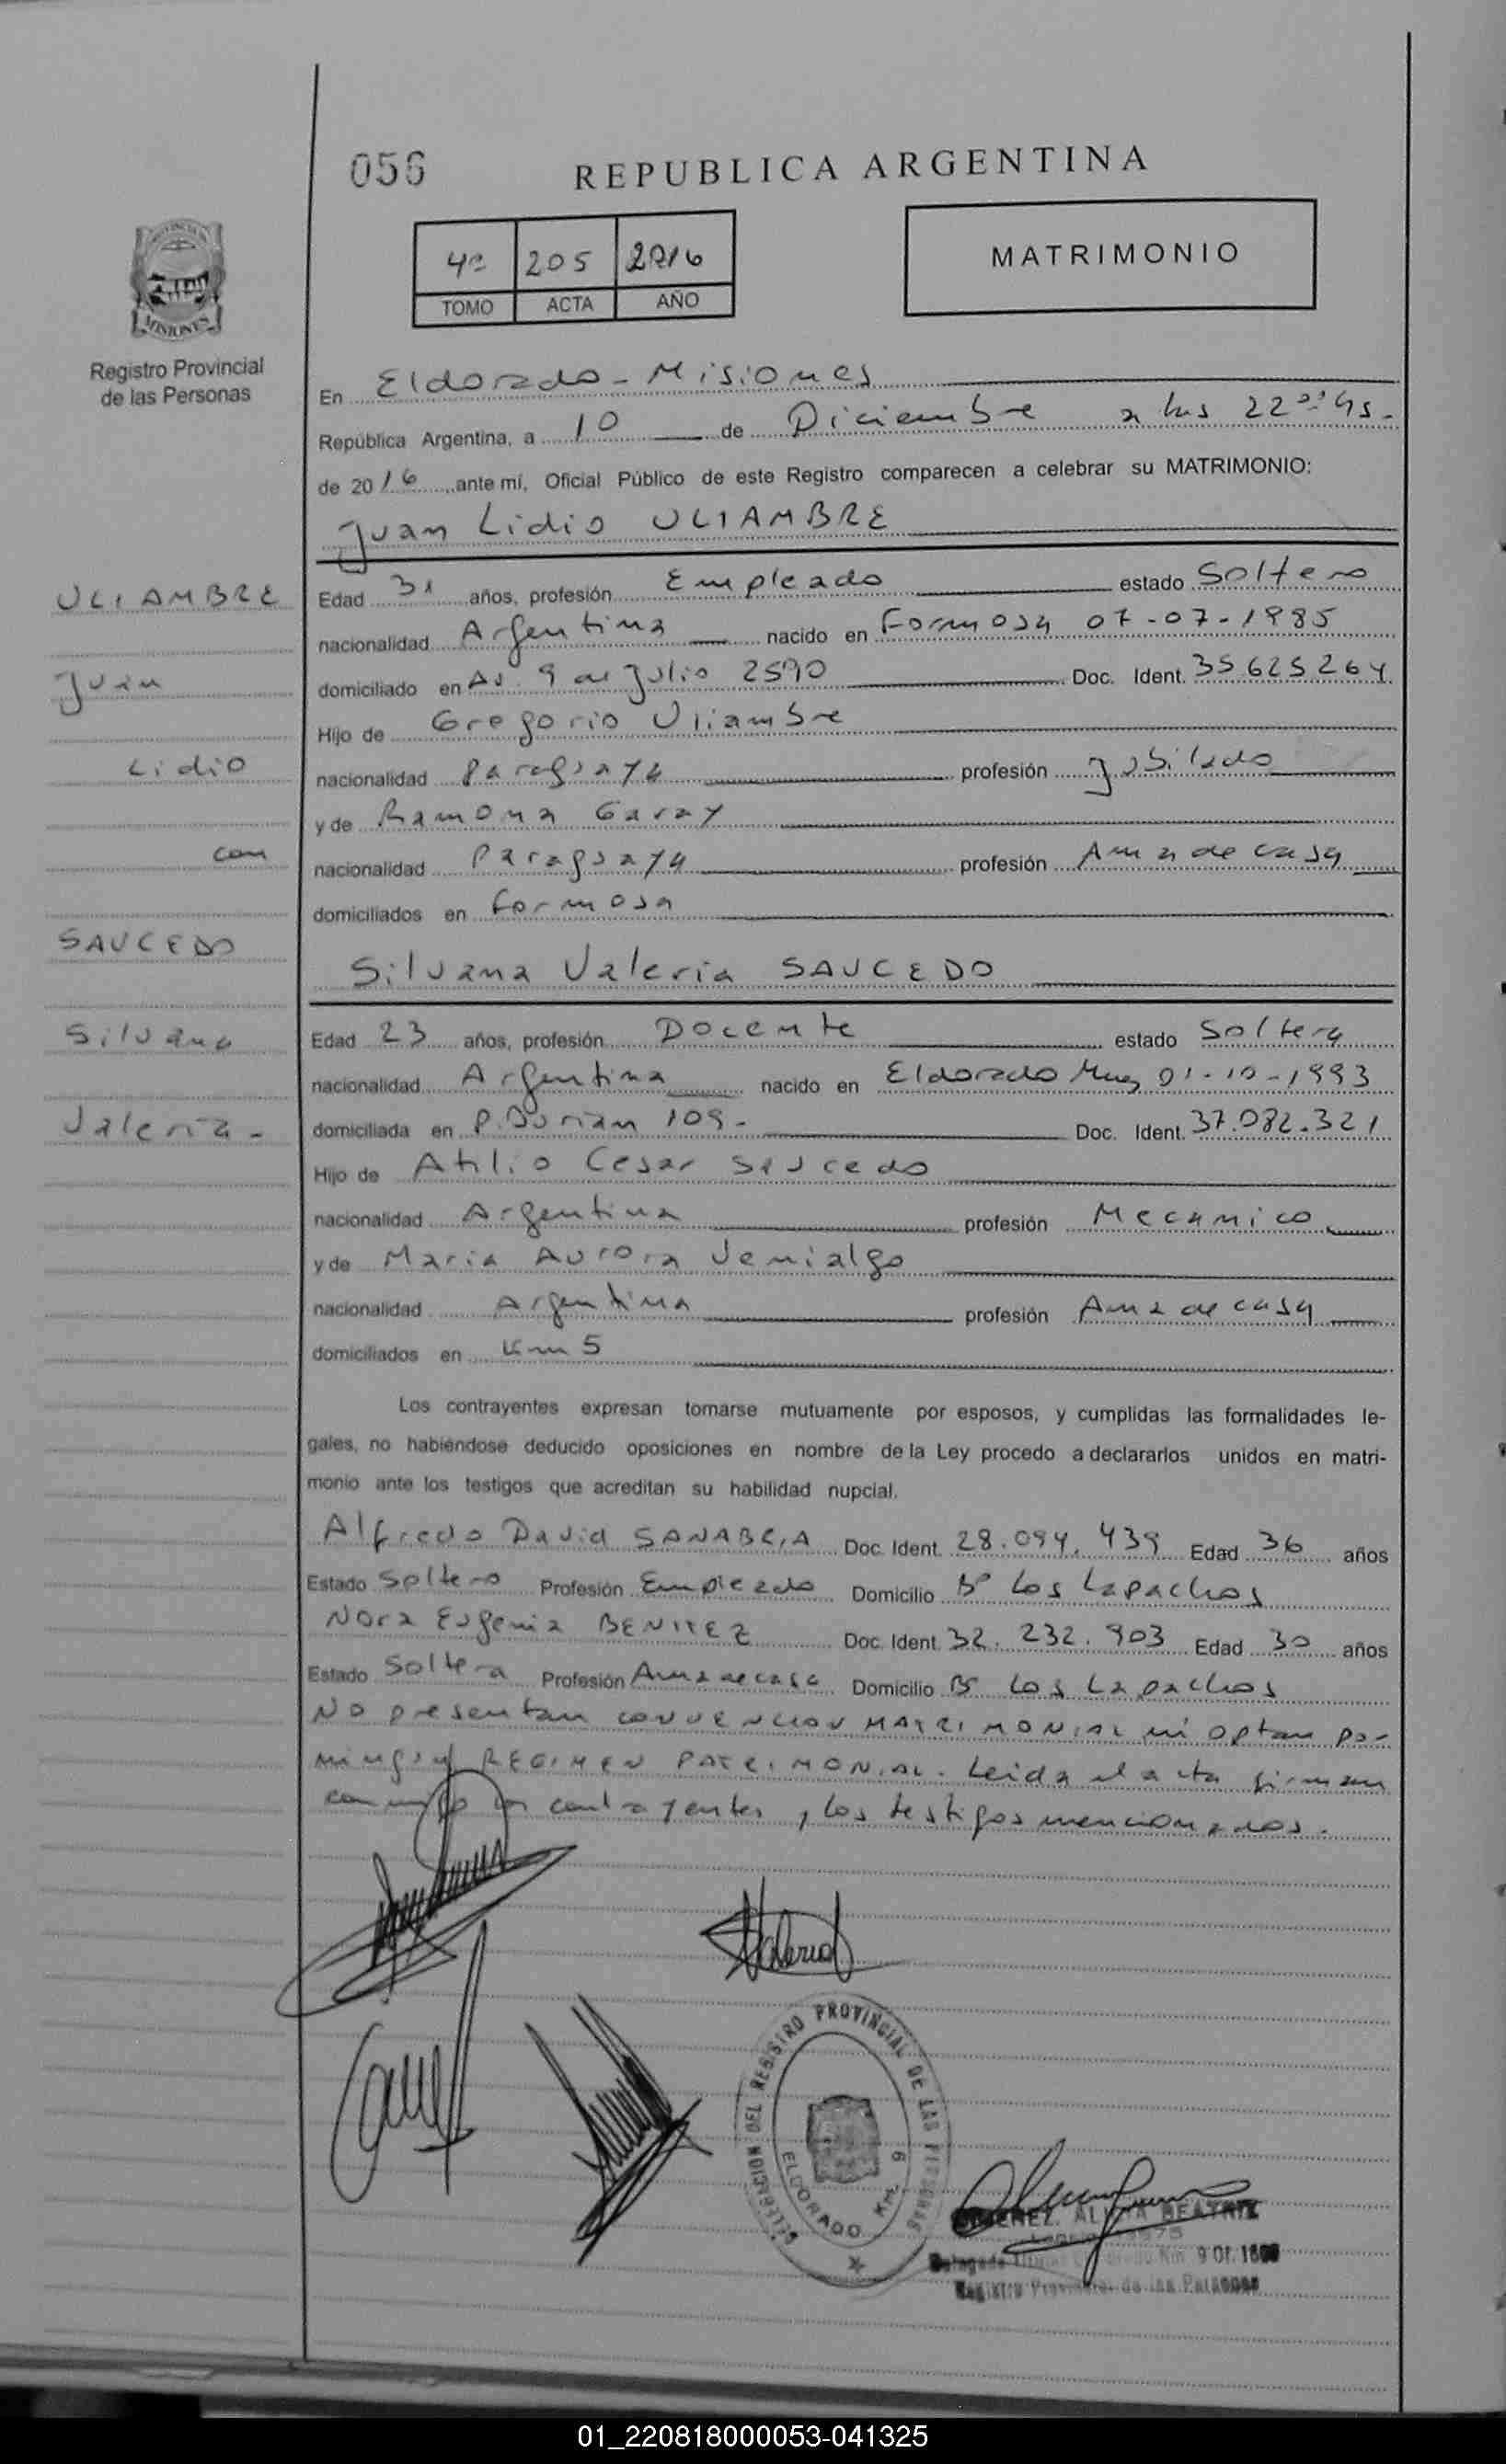 056
REPUBLICA ARGENTINA
4º 205 2016
TOMO ACTA AÑO
MATRIMONIO
MISIONES
Registro Provincial
de las Personas
En Eldorado - Misiones
República Argentina, a 10 de Diciembre a las 22 hs.
de 2016 ante mí, Oficial Público de este Registro comparecen a celebrar su MATRIMONIO:
Juan Lidio ULIAMBRE
ULIAMBRE
Juan
Lidio
con
SAUCEDO
Silvana
Valeria -
Edad 31 años, profesión Empleado estado Soltero
nacionalidad Argentina nacido en Formosa 07-07-1985
domiciliado en Av. 9 de Julio 2590 Doc. Ident. 35625264
Hijo de Gregorio Uliambre
nacionalidad Paraguaya profesión Jubilado
y de Ramona Garay
nacionalidad Paraguaya profesión Ama de casa
domiciliados en Formosa
Silvana Valeria SAUCEDO
Edad 23 años, profesión Docente estado Soltera
nacionalidad Argentina nacido en Eldorado Mnes 01-10-1993
domiciliada en P. 109 - Doc. Ident. 37.082.321
Hijo de Atilio Cesar Saucedo
nacionalidad Argentina profesión Mecanico
y de Maria Aurora Venialgo
nacionalidad Argentina profesión Ama de casa
domiciliados en Km 5
Los contrayentes expresan tomarse mutuamente por esposos, y cumplidas las formalidades le-
gales, no habiéndose deducido oposiciones en nombre de la Ley procedo a declararlos unidos en matri-
monio ante los testigos que acreditan su habilidad nupcial.
Alfredo David SANABRIA Doc. Ident. 28.094.439 Edad 36 años
Estado Soltero Profesión Empleado Domicilio Bº Los Lapachos
Nora Eugenia BENITEZ Doc. Ident. 32.232.903 Edad 30 años
Estado Soltera Profesión Ama de casa Domicilio Bº Los Lapachos
No presentan CONVENCION MATRIMONIAL ni optan por
ningun REGIMEN PATRIMONIAL. Leida el acta firman
conmigo los contrayentes, los testigos mencionados.
Valeria
DELEGACION DEL REGISTRO PROVINCIAL DE LAS PERSONAS
ELDORADO KM. 9
BEATRIZ
Km 9 Of.
Registro Provincial de las Personas
01_220818000053-041325